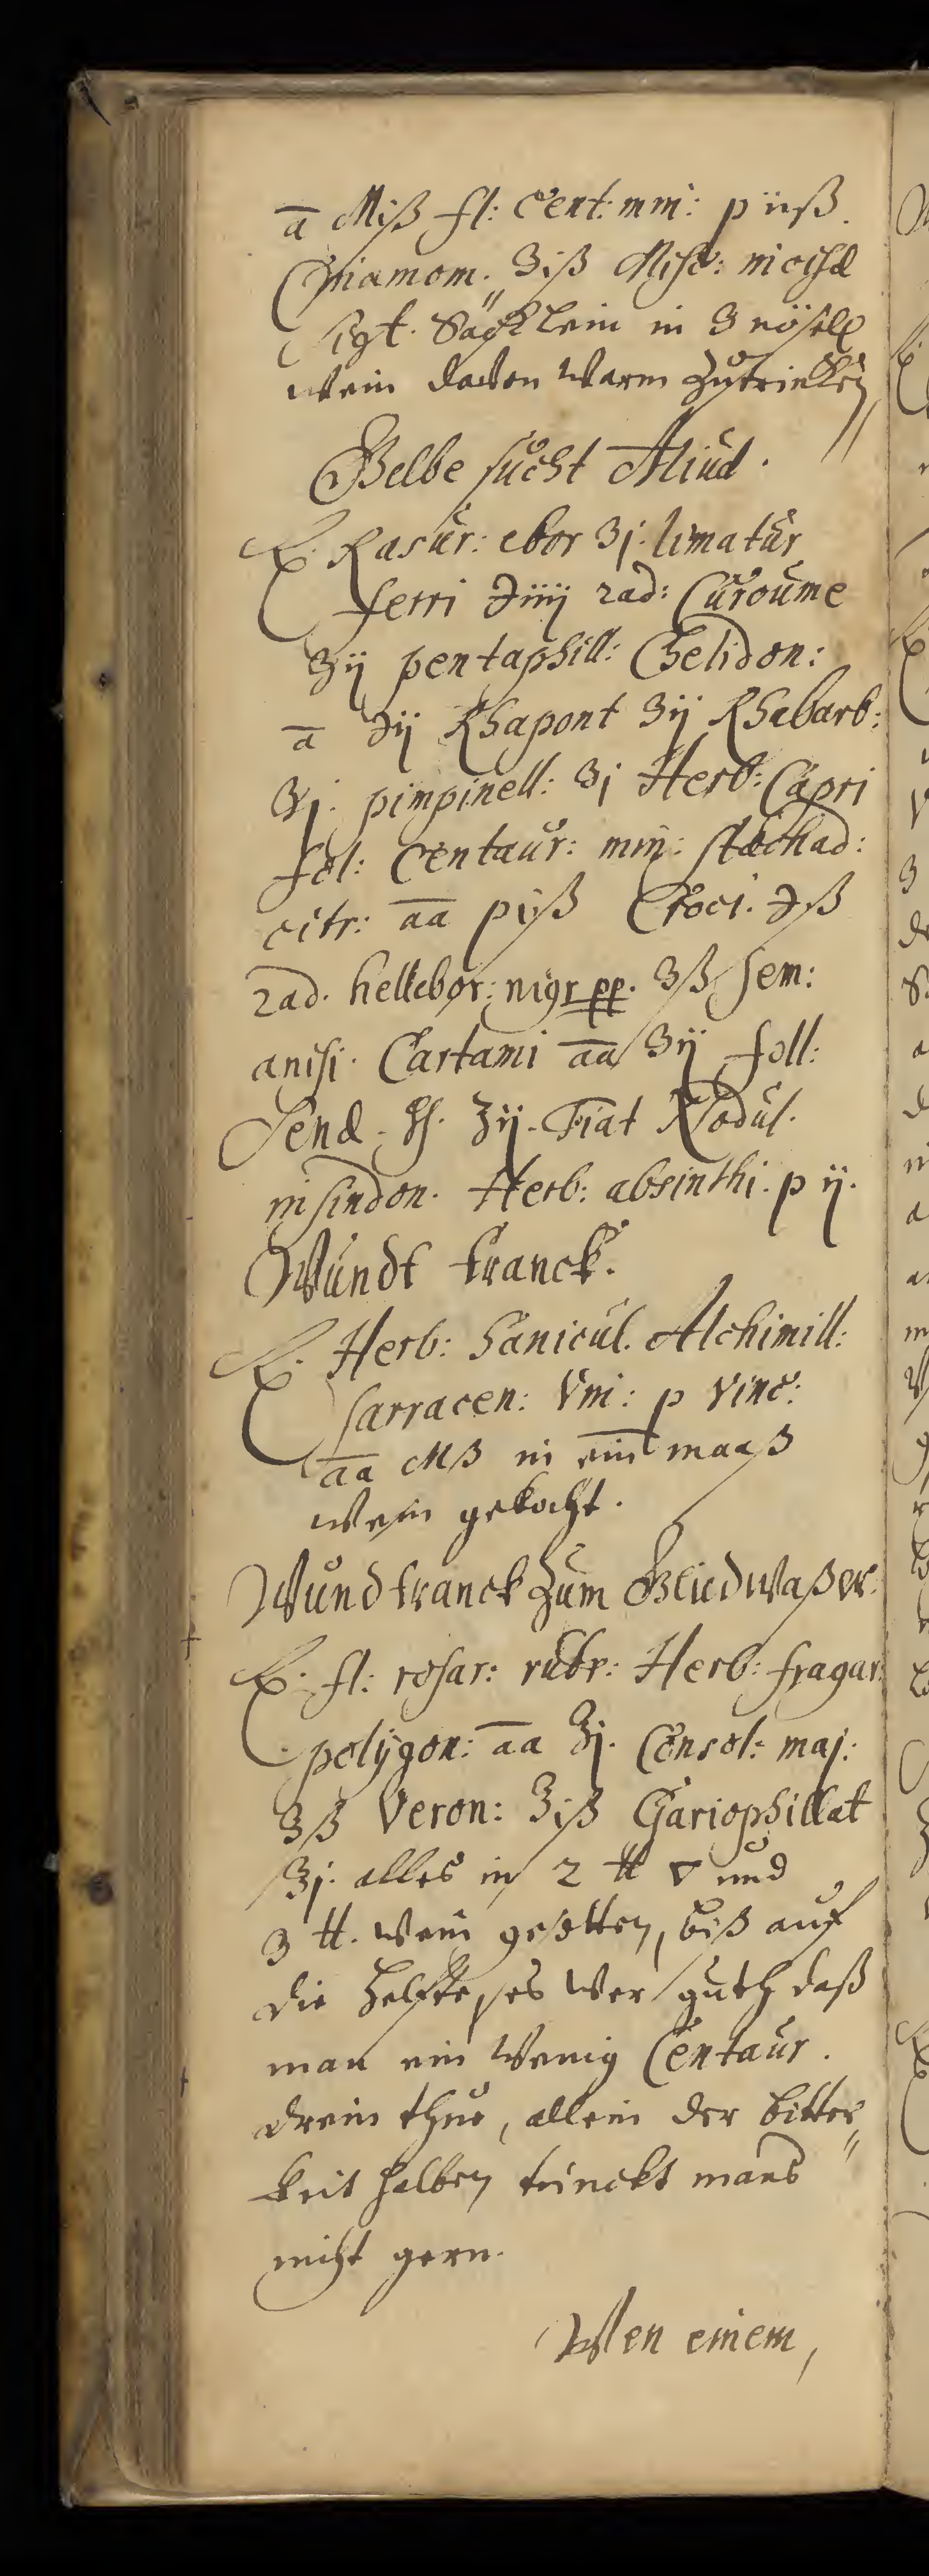 ā Miß fl: Cent: min: p iiß.
Cinamom. ʒiß Misc: incisæ
sigt. Säcklein in 3 nösell
wein davon warm zutrincken
Gelbe sucht Aliud.
℞. Rasur: ebor ʒj. limatur
ferri ℈iiij rad: Curcume
ʒij pentaphill: Chelidon:
ā ℈ij Rhapont ʒij Rhabarb:
ʒj. pimpinell: ʒj Herb: Capri
fol: Centaur: min: stæchad:
citr: āā piß Croci. ℈ß
rad. hellebor: nigr pp. ʒß sem:
anisi. Cartami āā ʒij foll:
Senæ. ʒij. Fiat Nodul.
in sindon. Herb: absinthi. p ij.
Wundt tranck.
℞. Herb: Sanicul. Alchimill:
sarracen: Vin: p vinc:
āā Mß in ein maaß
wein gekocht.
Wundtranck zum Gliedwaßer.
℞. fl: rosar: rubr: Herb: fragar:
polygon: āā ʒj. Consol: maj:
ʒß Veron: ʒiß Gariophillat
ʒj. alles in 2 ℔ ▽ und
3 ℔. wein gesotten, biß auf
die helfte, es wer guth daß
man ein wenig Centaur.
drein thue, allein der bitter„
keit halben trinckt mans
nicht gern.
Wen einem,